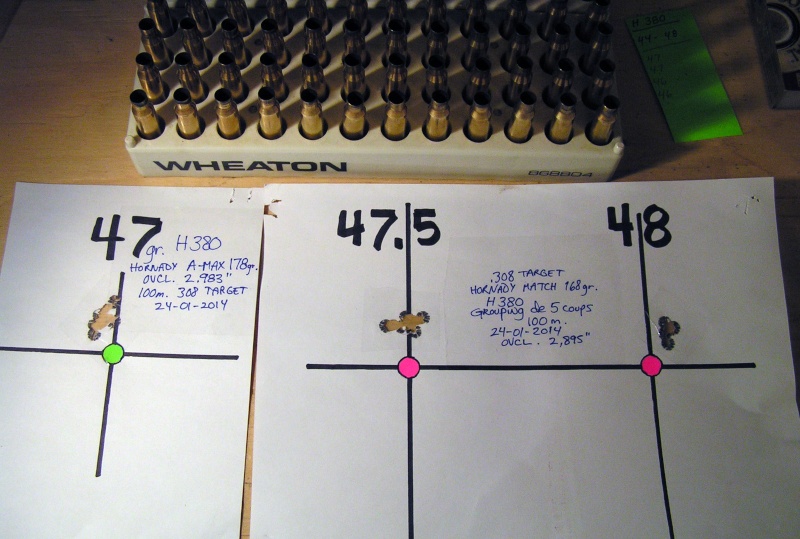 H 380
44-48
47
WHEATON
868804
47 gr. H380
HORNADY A-MAX 178gr.
OVCL. 2.983"
100m. 308 TARGET
24-01-2014
47.5
48
.308 TARGET
HORNADY MATCH 168gr.
H380
Grouping de 5 coups
100 m.
24-01-2014
OVCL. 2,895"